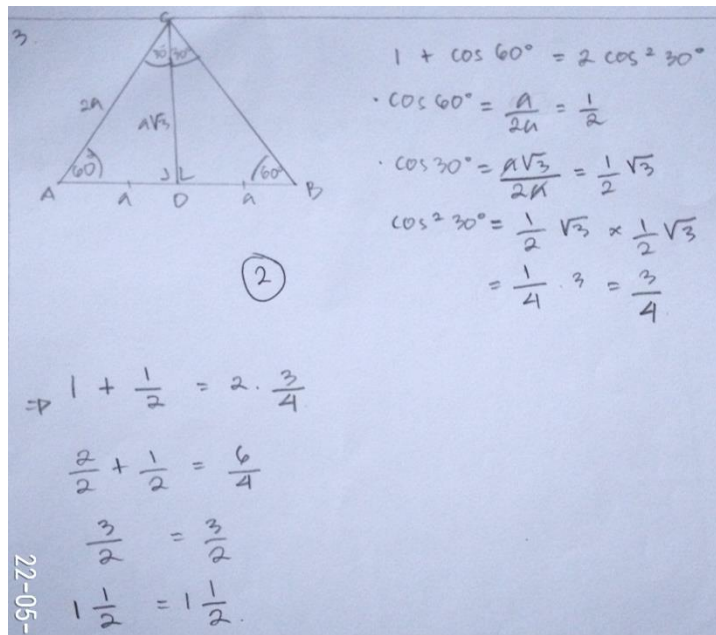 3.
C
30° 30°
2a
a√3
60°
60°
A
a
D
a
B
2
1 + cos 60° = 2 cos² 30°
· cos 60° = a/2a = 1/2
· cos 30° = a√3/2a = 1/2 √3
cos² 30° = 1/2 √3 × 1/2 √3
= 1/4 . 3 = 3/4
⇒ 1 + 1/2 = 2 . 3/4
2/2 + 1/2 = 6/4
3/2 = 3/2
1 1/2 = 1 1/2.
22-05-